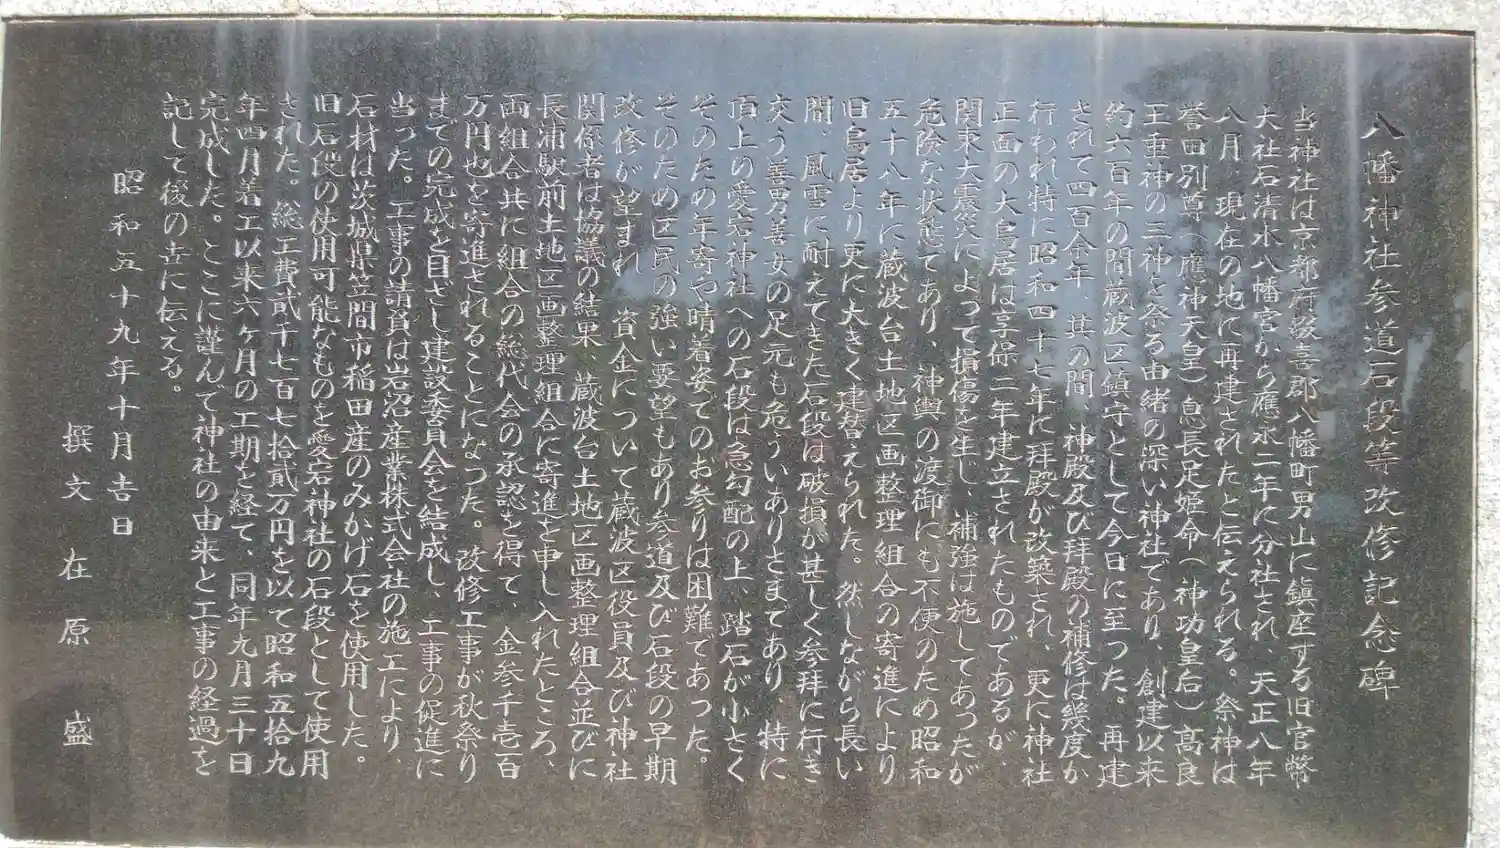 八幡神社参道石段等改修記念碑
当神社は京都府綴喜郡八幡町男山に鎮座する旧官幣
大社石清水八幡宮から應永二年に分社され、天正八年
八月、現在の地に再建されたと伝えられる。祭神は
誉田別尊（應神天皇）息長足姫命（神功皇后）高良
王垂神の三神と祭る由緒の深い神社であり、創建以来
約六百年の間蔵波区鎮守として今日に至つた。再建
されて四百余年、其の間、神殿及び拝殿の補修は幾度か
行われ特に昭和四十七年に拝殿が改築され、更に神社
正面の大鳥居は享保二年建立されたものであるが、
関東大震災によつて損傷を生じ、補強は施してあつたが
危険な状態であり、神輿の渡御にも不便のため昭和
五十八年に蔵波台土地区画整理組合の寄進により
旧鳥居より更に大きく建替えられた。然しながら長い
間、風雪に耐えてきた石段は破損が甚しく参拝に行き
交う善男善女の足元も危ういありさまであり、特に
頂上の愛宕神社への石段は急勾配の上、踏石が小さく
そのため年寄や晴着姿でのお参りは困難であつた。
そのため区民の強い要望もあり参道及び石段の早期
改修が望まれ、資金について蔵波区役員及び神社
関係者は協議の結果、蔵波台土地区画整理組合並びに
長浦駅前土地区画整理組合に寄進を申し入れたところ、
両組合共に組合の総代会の承認を得て、金参千壱百
万円也を寄進されることになつた。改修工事が秋祭り
までの完成を目ざし建設委員会を結成し、工事の促進に
当つた。工事の請負は岩沼産業株式会社の施工により、
石材は茨城県笠間市稲田産のみかげ石を使用した。
旧石段の使用可能なものを愛宕神社の石段として使用
された。総工費貳千七百七拾貳万円を以て昭和五拾九
年四月着工以来六ヶ月の工期を経て、同年九月三十日
完成した。ここに謹んで神社の由来と工事の経過を
記して後の世に伝える。
昭和五十九年十月吉日
撰文 在原 盛